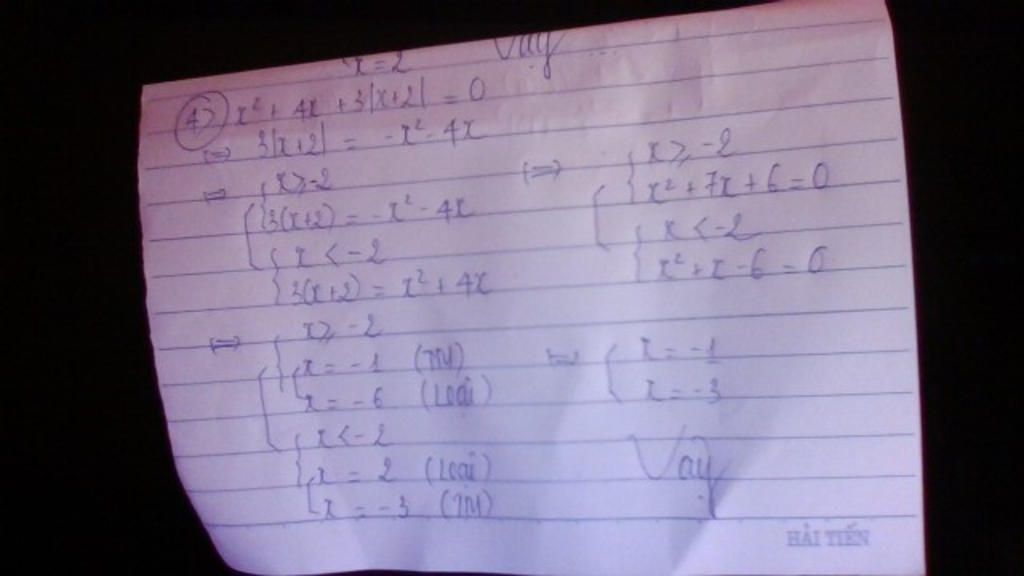 x = 2 Vậy ...
4) x² + 4x + 3|x+2| = 0
⇔ 3|x+2| = -x² - 4x
⇔ [ { x ≥ -2
3(x+2) = -x² - 4x
{ x < -2
3(x+2) = x² + 4x
⇔ [ { x ≥ -2
x² + 7x + 6 = 0
{ x < -2
x² + x - 6 = 0
⇔ [ { x ≥ -2
[ x = -1 (TM)
x = -6 (Loại)
{ x < -2
[ x = 2 (Loại)
x = -3 (TM)
⇔ [ x = -1
x = -3
Vậy
HẢI TIẾN